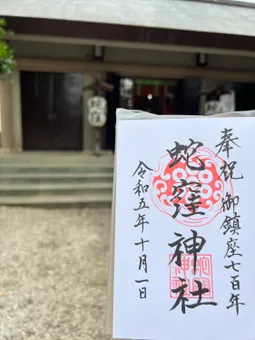 奉祝 御鎮座七百年
蛇窪神社
令和五年十月一日